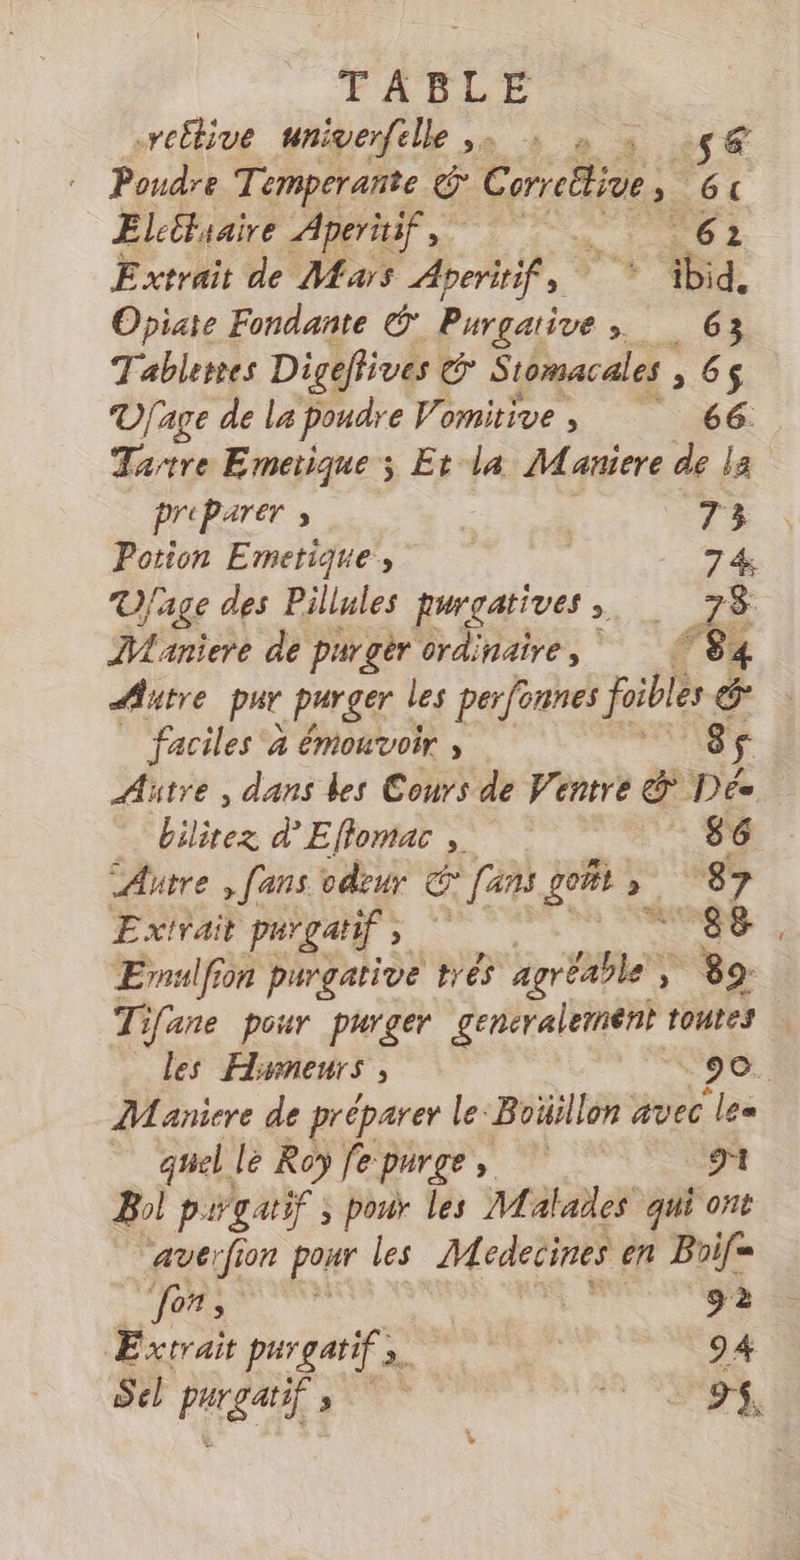 TABLE
rective univerſelle, 56
Poudre Temperante & Corrective, 61
Electuaire Aperitif, 62
Extrait de Mars Aperitif, ibid.
Opiate Fondante & Purgative, 63
Tablettes Digeſtives & Stomacales, 65
Uſage de la poudre Vomitive, 66
Tartre Emetique; Et la Maniere de la
preparer, 73
Potion Emetique, 74
Uſage des Pillules purgatives, 78
Maniere de purger ordinaire, 84
Autre pur purger les perſonnes foibles &
faciles à émouvoir, 85
Autre, dans les Cours de Ventre & Dé-
bilitez d'Eſtomac, 86
Autre, ſans odeur & ſans goût, 87
Extrait purgatif, 88
Emulſion purgative trés agréable, 89
Tiſane pour purger generalement toutes
les Humeurs, 90
Maniere de préparer le Boüillon avec le-
quel le Roy ſe purge, 91
Bol purgatif; pour les Malades qui ont
averſion pour les Medecines en Boiſ-
ſon, 92
Extrait purgatif, 94
Sel purgatif, 95